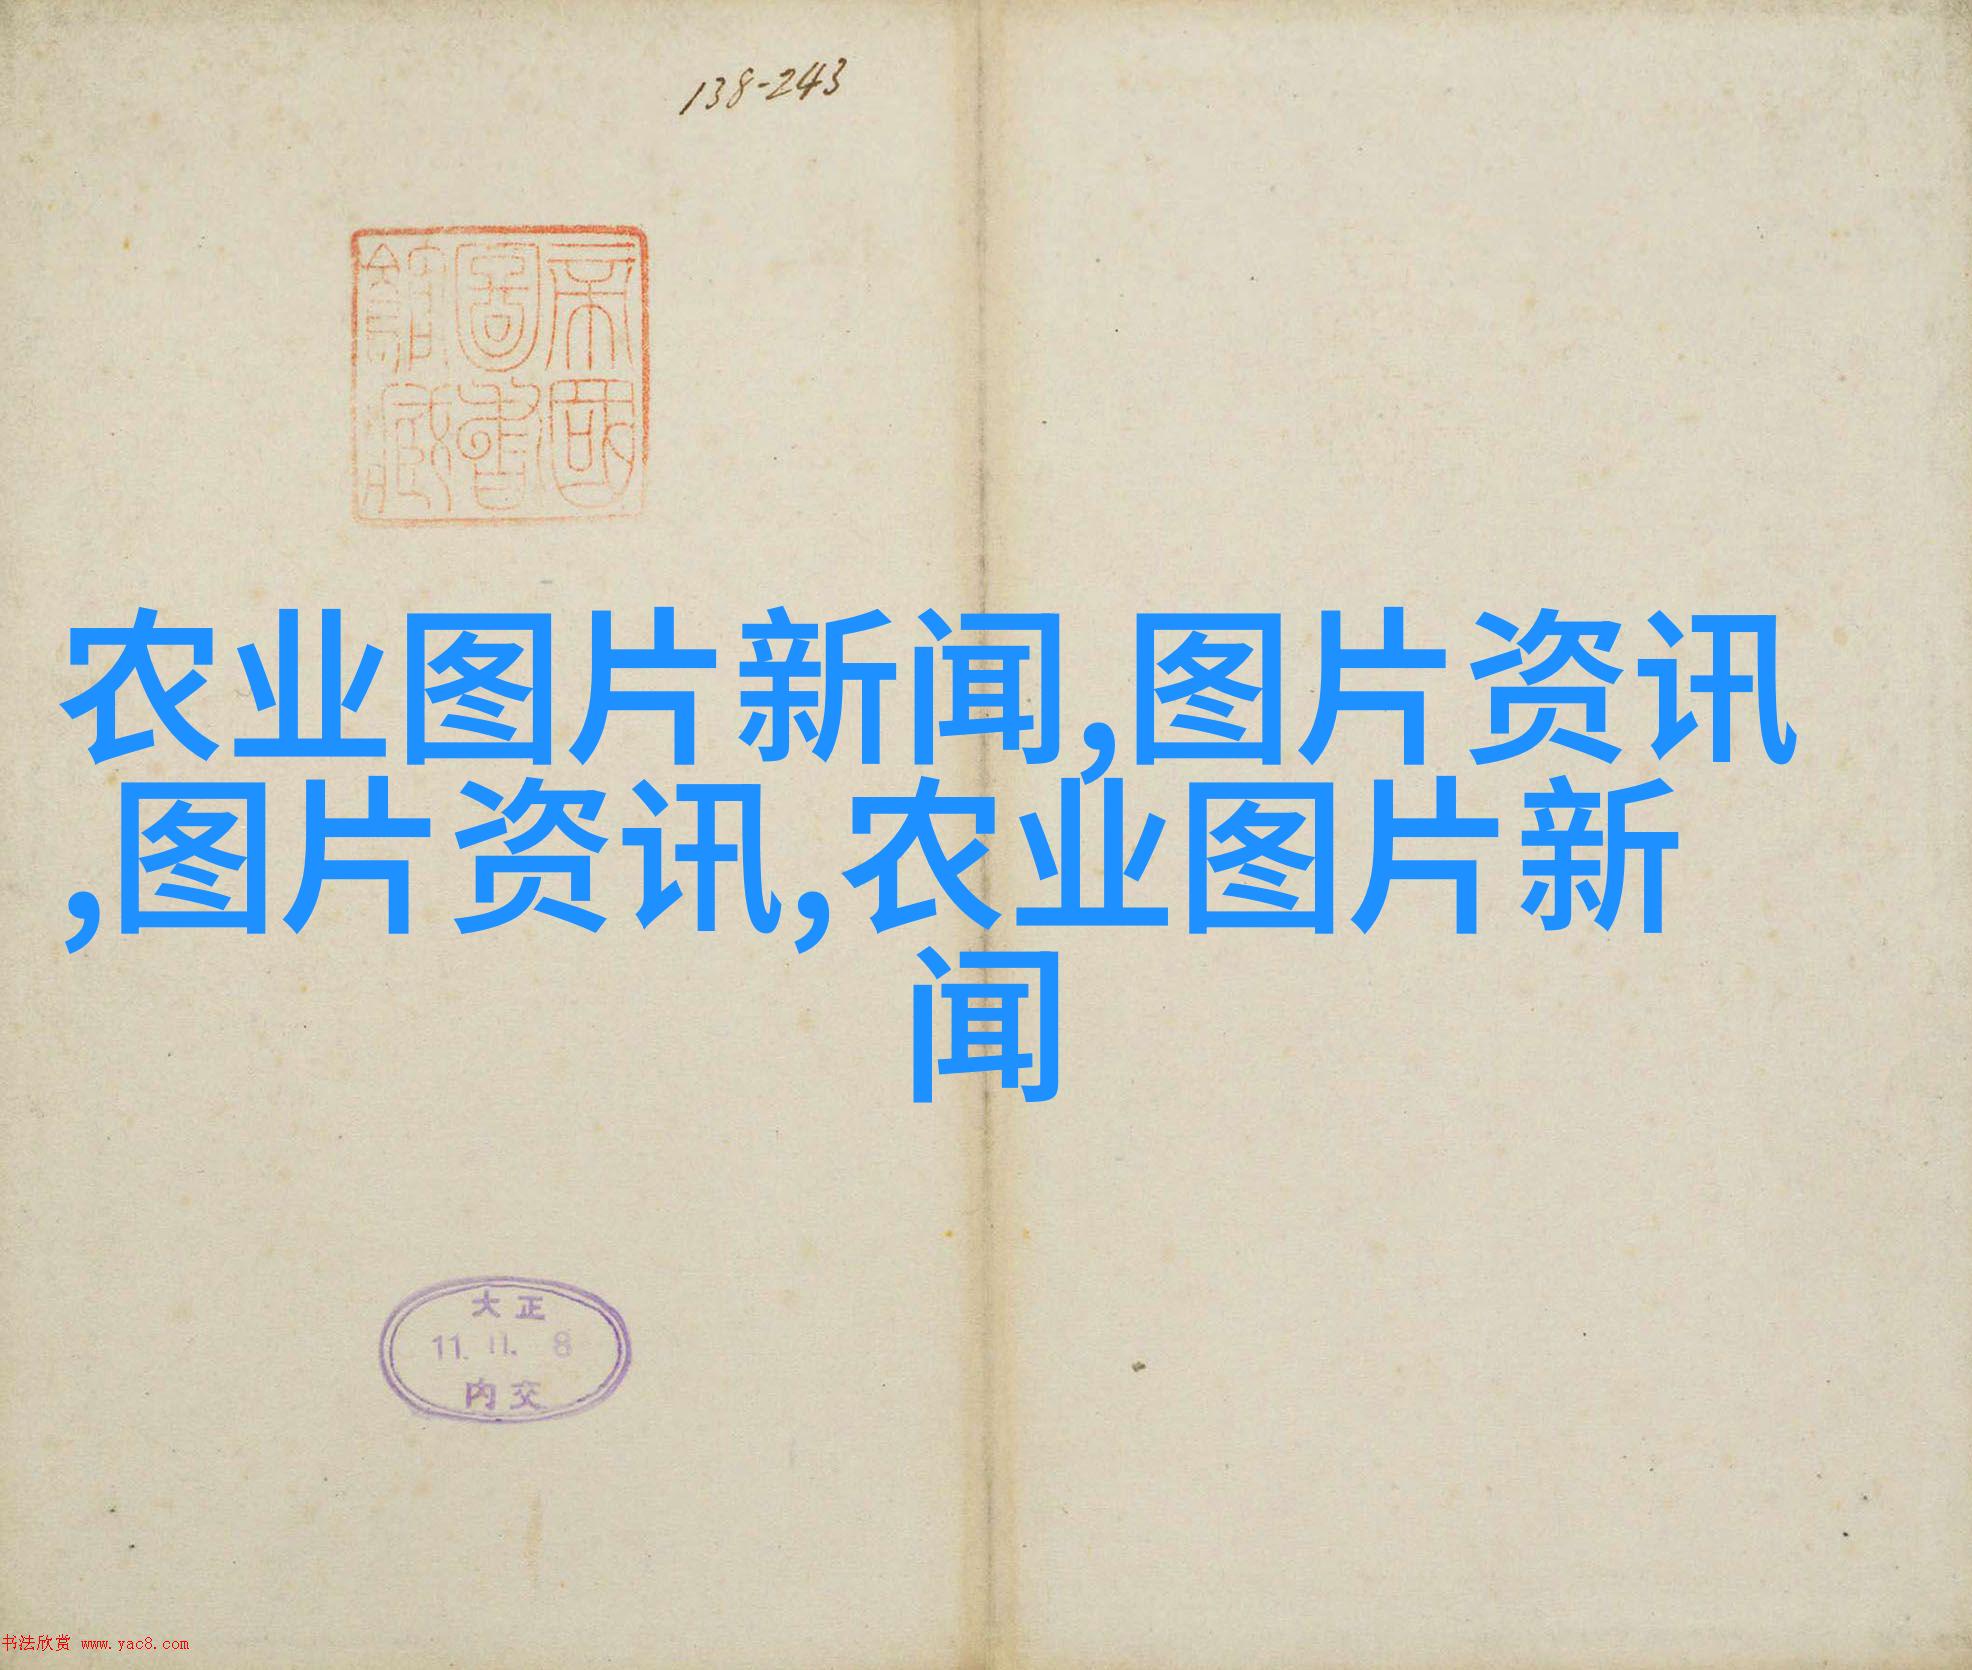 138-243
帝國
圖書
館藏
农业图片新闻,图片资讯
,图片资讯,农业图片新
闻
大正
11.11.8
内交
书法欣赏 www.yac8.com